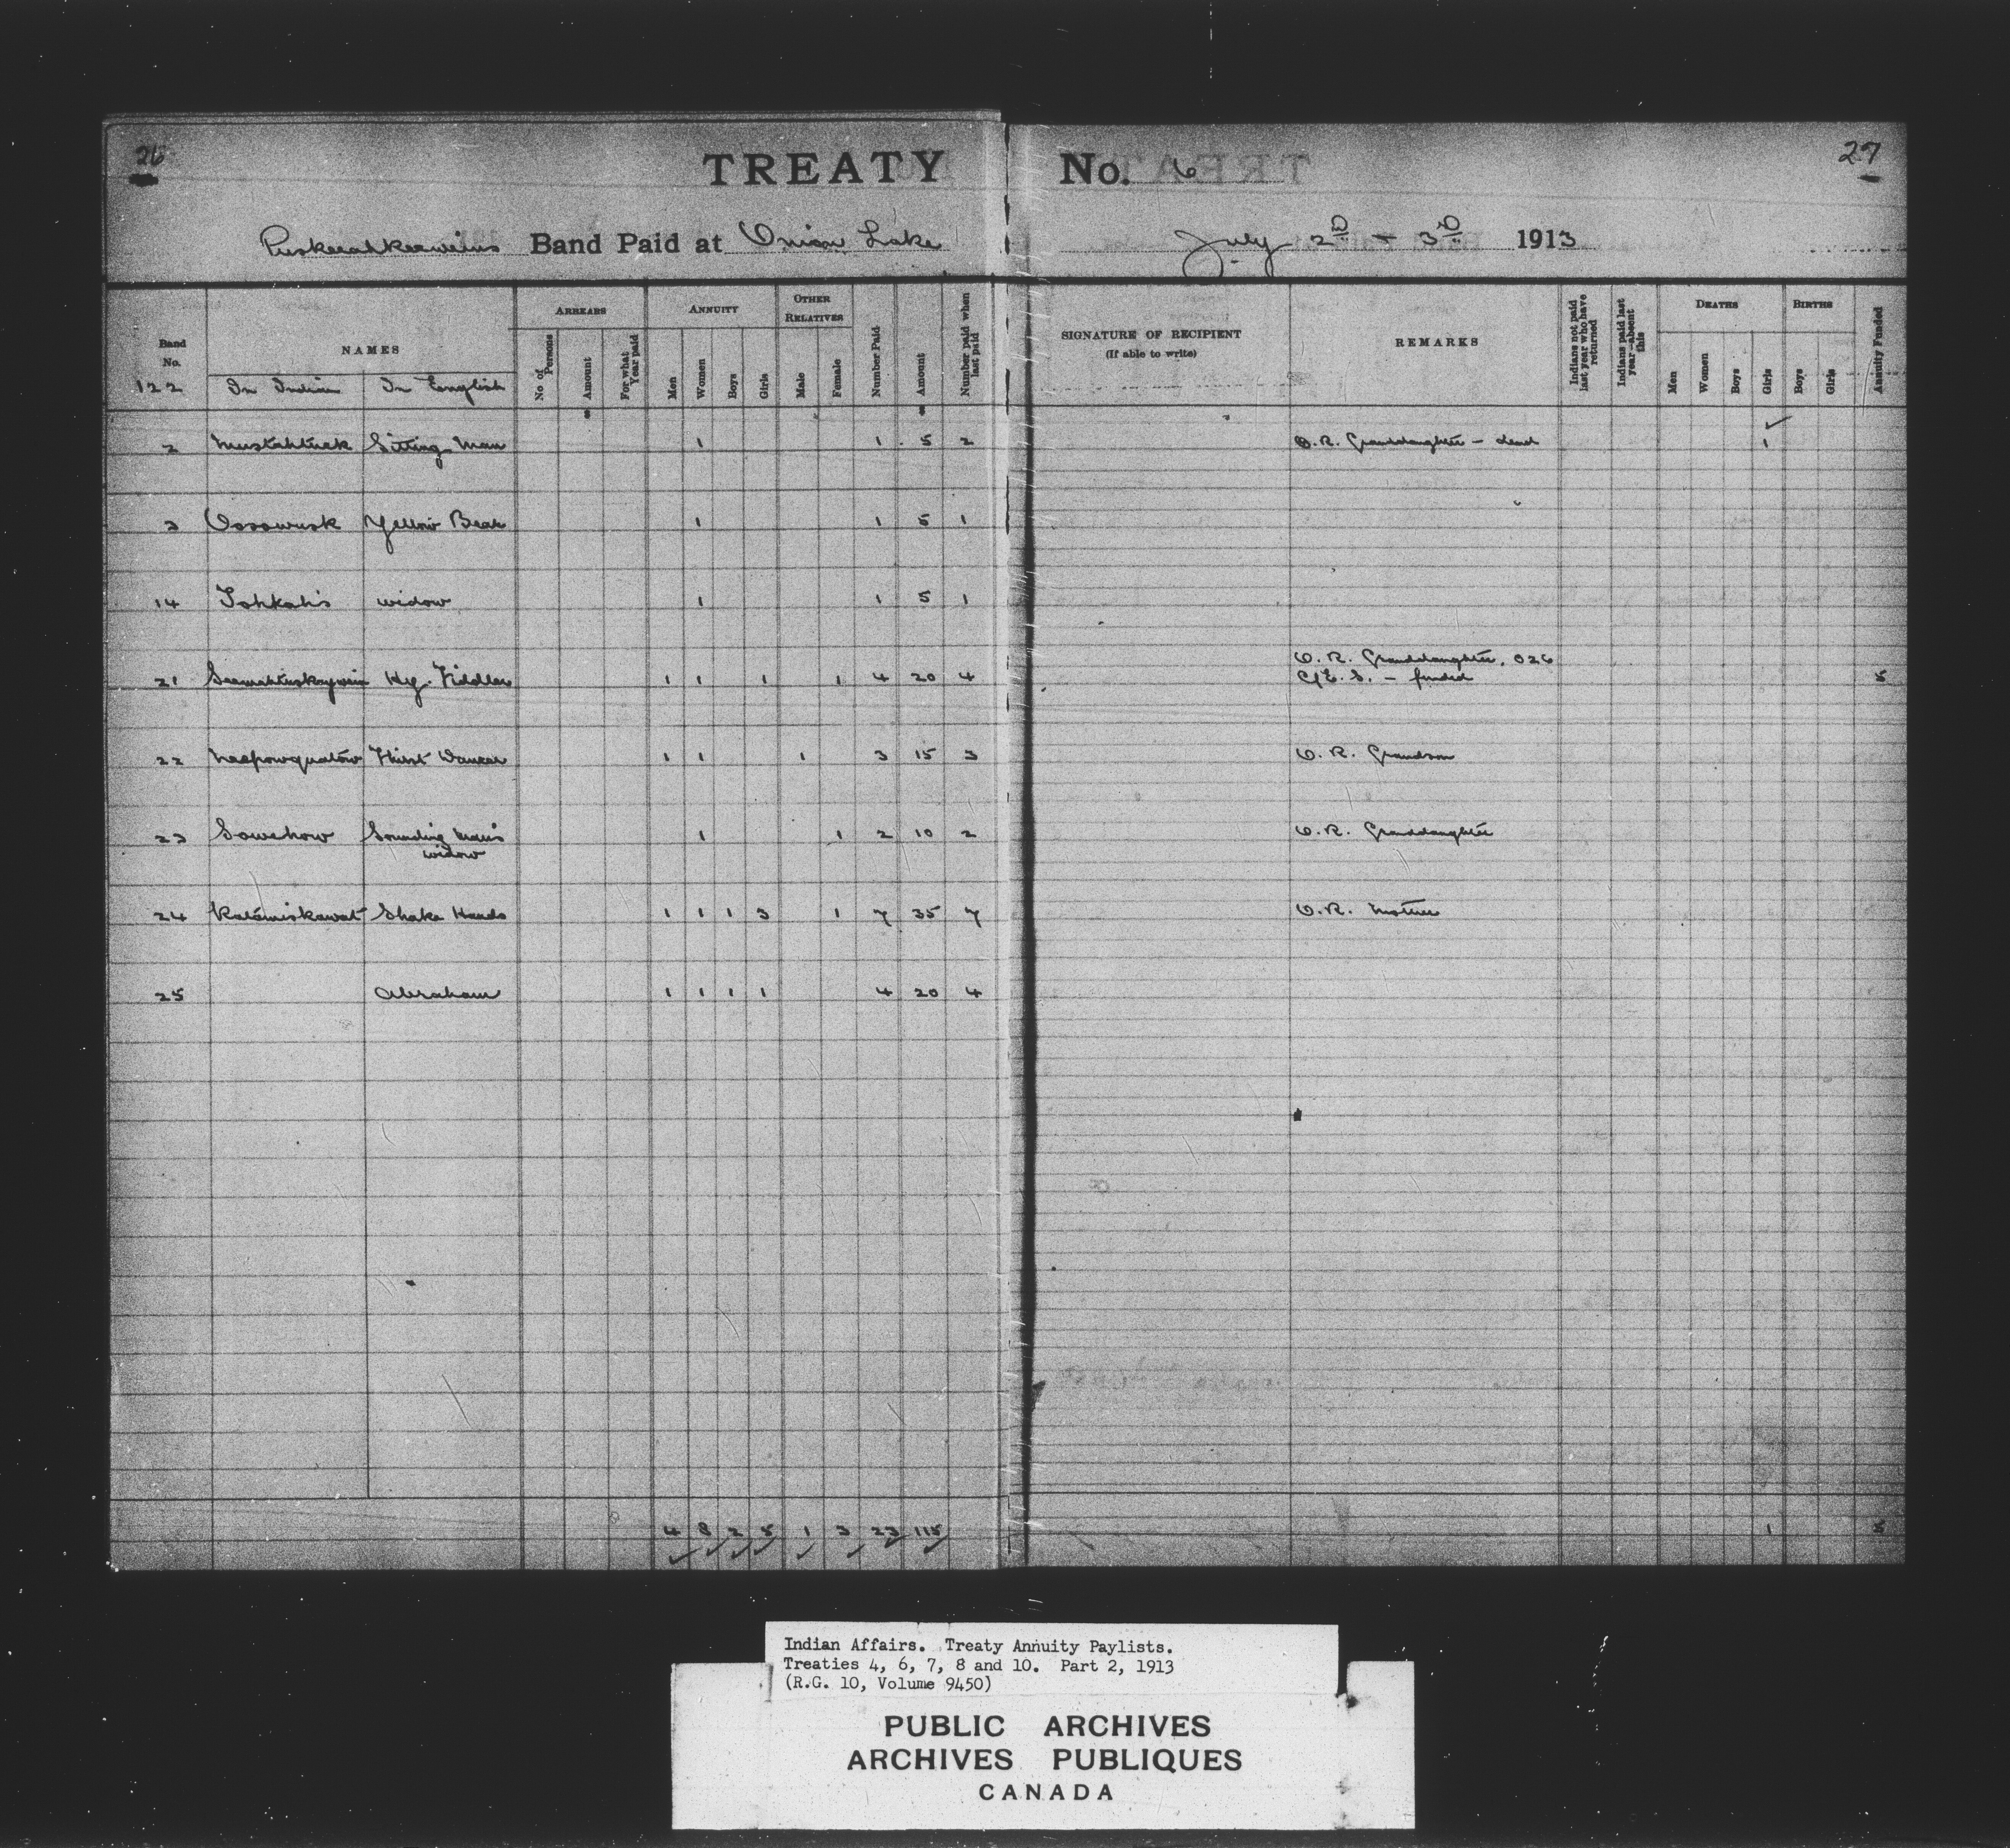 26
TREATY No. 6
27
Puskeeahkeewins Band Paid at Onion Lake July 2D + 3D 1913
Band No. 122
NAMES
In Indian In English
ARREARS
No of Persons
Amount
For what Year paid
ANNUITY
Men
Women
Boys
Girls
OTHER RELATIVES
Male
Female
Number Paid
Amount
Number paid when last paid
SIGNATURE OF RECIPIENT
(If able to write)
REMARKS
Indians not paid last year who have returned
Indians paid last year—absent this
DEATHS
Men
Women
Boys
Girls
BIRTHS
Boys
Girls
Annuity Funded
2 Mustahtuck Sitting Man 1 1 5 2 O.R. Granddaughter – dead 1
3 Oosowusk Yellow Bear 1 1 5 1
14 Tohkoh's widow 1 1 5 1
O.R. Granddaughter, 026
21 Hy. Fiddler 1 1 1 1 4 20 4 – funded 5
22 1 1 1 3 15 3 O.R. Grandson
23 Sowehow Sounding Man's widow 1 1 2 10 2 O.R. Granddaughter
24 Katamiskawat Shake Hands 1 1 1 3 1 7 35 7 O.R. Mother
25 Abraham 1 1 1 1 4 20 4
4 8 2 5 1 3 23 115 1 5
Indian Affairs. Treaty Annuity Paylists.
Treaties 4, 6, 7, 8 and 10. Part 2, 1913
(R.G. 10, Volume 9450)
PUBLIC ARCHIVES
ARCHIVES PUBLIQUES
CANADA